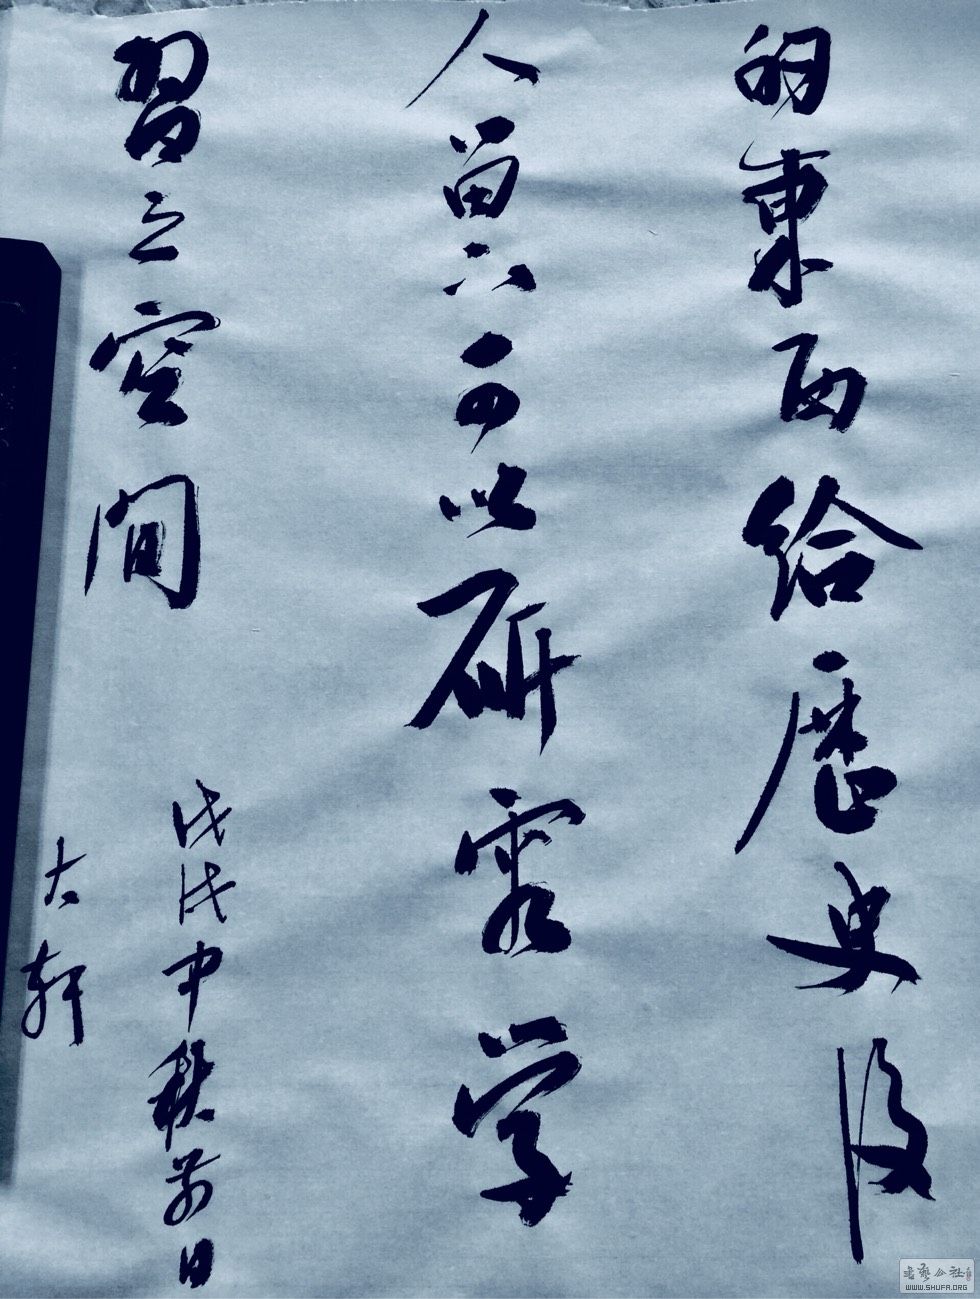 的東西給歷史後
人留下可以研究学
習之空間
戊戌中秋前日
大軒
書藝公社
WWW.SHUFA.ORG